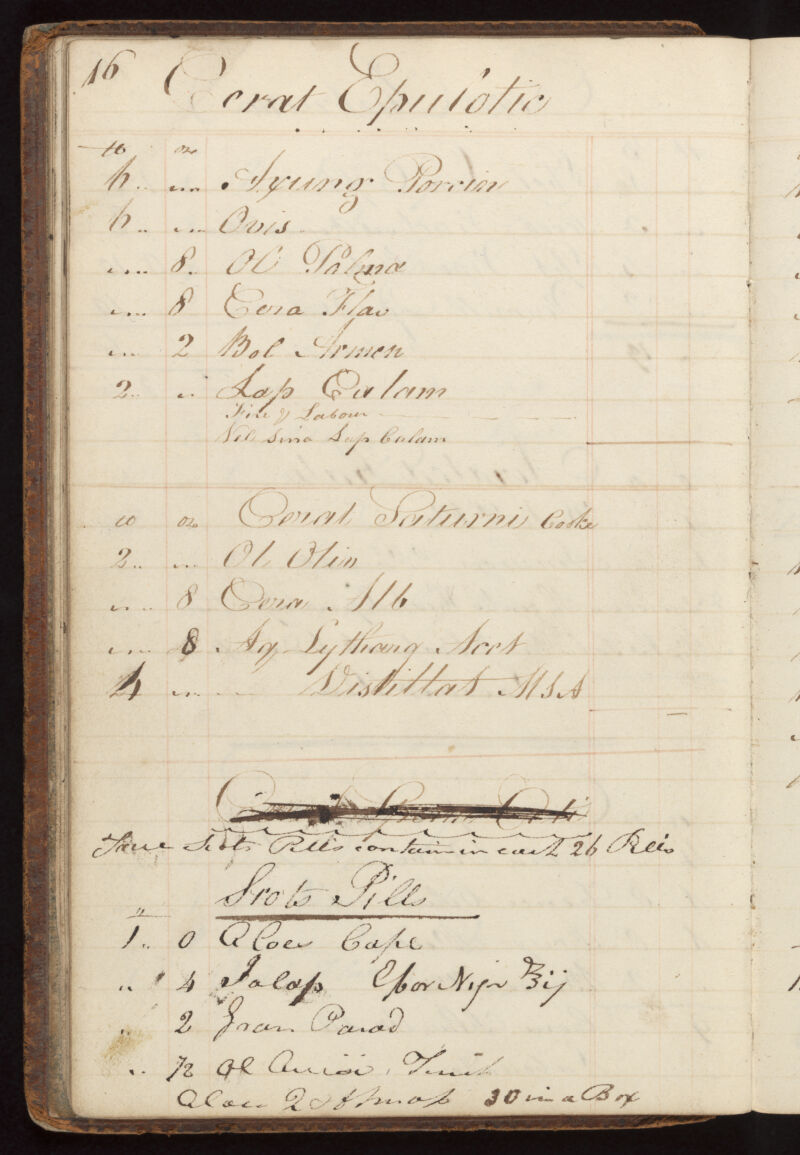 16
Cerat Epulotic
lb oz
6 Axung Porcin
6 Ovis
8 Ol Palmæ
8 Cera Flav
2 Bol Armen
2 Lap Calam
Fire & Labour
Vel Sine Lap Calam
lb oz Cerat Saturni Cooke
2 Ol Oliv
8 Cera Alb
8 Aq Lytharg Acet
4 Distillat MSA
Scots Pills contain in each 26 Pills
Scots Pills
1 0 Aloes Cape
4 Jalap Ebor Nigr ʒij
2 Gran Parad
½ Ol Anisi
30 in a Box